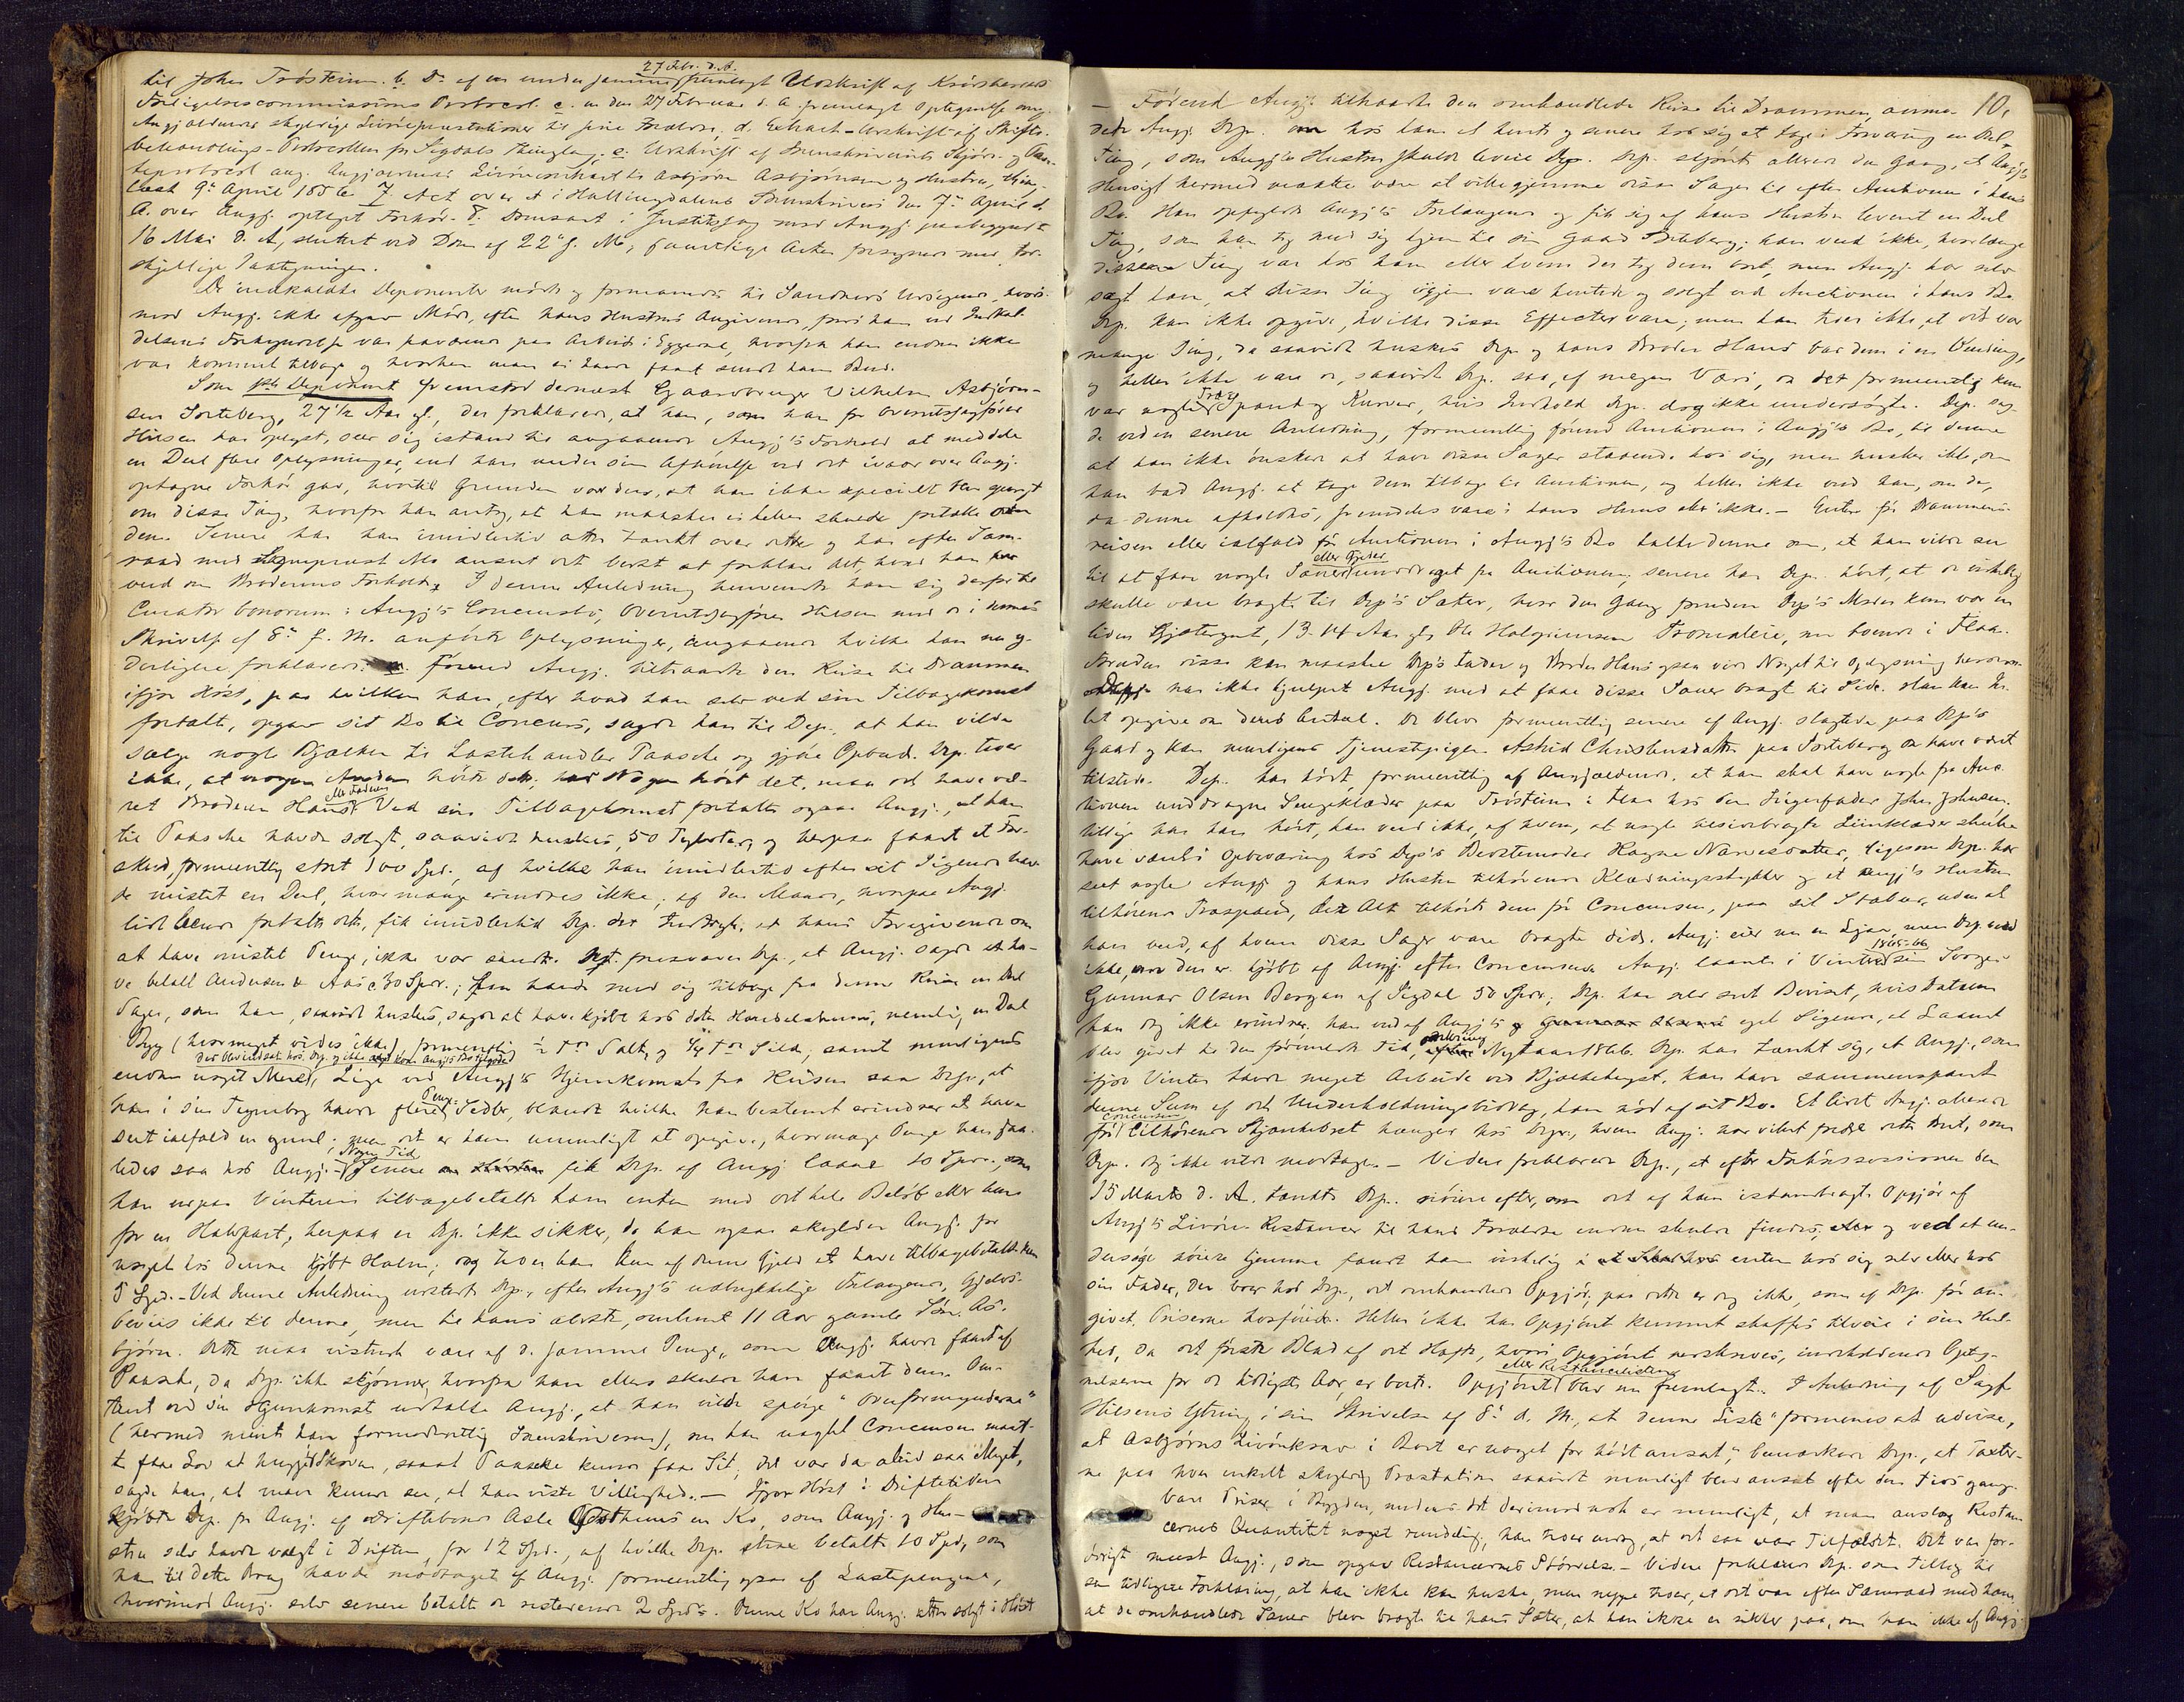 27 Febr. d. A.
til John Trøsteim. b. Do af en under samme fremlagt Udskrift af Krødsherreds
Forligelsescommissions Protocol. c. en den 27 Februar d. A. fremlagt Optegnelse ang.
Angjældendes skyldige Livøreprestationer til sine Forældre, d. Extract-Udskrift af Skifte-
behandlings-Protocollen for Sigdals Thinglag, e: Udskrift af Sorenskriveriets Skjøde- og Pan-
teprotocol ang. Angjældendes Livørecontract til Asbjørn Asbjørnsen og Hustru, thin-
læst 9de April 1856 f Act over et i Hallingdalens Sorenskriveri den 7de April d.
A. over Angj. optaget Forhør. g. Domsact i Justitssag mod Angj. paabegyndt
16 Mai d. A, sluttet ved Dom af 22de f. M., samtlige Acter forsynede med for-
skjellige Paategninger.
De indkaldte Deponenter mødte og formanedes til Sandheds Udsigende, hvori-
mod Angj. ikke afgav Møde, efter hans Hustrues Angivende, fordi han ved Indkal-
delsens Forkyndelse var fraværende paa Arbeide i Eggedal, hvorfra han endnu ikke
var kommet tilbage og hvorhen man ei havde faaet sendt ham Bud.
Som 1ste Deponent fremstod dernæst Gaardbruger Vilhelm Asbjørn-
sen Sorteberg, 27½ Aar gl., der forklarede, at han, som han for Overretssagfører
Hilsen har oplyst, seer sig istand til angaaende Angj's Forhold at meddele
en Deel flere Oplysninger, end han under sin Afhørelse ved det ivaar over Angj.
optagne Forhør gav, hvortil Grunden var den, at han ikke specielt blev spurgt
om disse Ting, hvorfor han antog, at han maaskee ei heller skulde fortælle om
dem. Senere har han imidlertid atter tænkt over dette og har efter Sam-
raad med Sogneprest Mo anseet det bedst at forklare Alt, hvad han
veed om Broderens Forhold. I denne Anledning henvendte han sig derfor til
Curator bonorum i Angj's Concursbo, Overretssagfører Hilsen med de i dennes
Skrivelse af 8de f. M. anførte Oplysninger, angaaende hvilke han nu y-
derligere forklarede: Førend Angj. tiltraadte den Reise til Drammen
ifjor Høst, paa hvilken han, efter hvad han selv ved sin Tilbagekomst
fortalte, opgav sit Bo til Concurs, sagde han til Dep., at han vilde
sælge nogle Bjælker til Lasthandler Paasche og gjøre Opbud. Dep. troer
ikke, at nogen Anden hørte det; har Nogen hørt det, maa det have væ-
ell. Faderen
ret Broderen Hans. Ved sin Tilbagekomst fortalte ogsaa Angj., at han
til Paasche havde solgt, saavidt huskes, 50 Tylvter, og herpaa faaet et For-
skud, formentlig stort 100 Spd., af hvilke han imidlertid efter sit Sigende hav-
de mistet en Deel, hvor mange erindres ikke; af den Maade, hvorpaa Angj.
fortalte dette, fik imidlertid Dep. det Indtryk, at hans Foregivende om
at have mistet Penge, ikke var sandt. forsvarer Dep., at Angj. sagde at ha-
ve betalt Andersen & Aas c. 30 Spd.; han havde med sig tilbage fra denne Reise en Deel
Sager, som han, saavidt huskes, sagde at have kjøbt hos dette Handelshuus, nemlig en Deel
Byg (hvormeget vides ikke), formentlig ½ Tde Salt, og ¼ Tde Sild, samt muligens
der blev indsat hos Dep. og ikke kom Angj's Bo tilgode
endnu noget Meel. Lige ved Angj's Hjemkomst fra Reisen saa Dep., at
Penge-
han i sin Tegnebog havde flere Sedler, blandt hvilke han bestemt erindrer at have
seet ialfald en gul; men det er ham umuligt at opgive, hvormange Penge han saa-
Nogen Tid
ledes saa hos Angj. Senere fik Dep. af Angj. laant 10 Spd., som
han udpaa Vinteren tilbagebetalte ham enten med det hele Beløb eller kun
for en Halvpart, herpaa er Dep. ikke sikker, da han ogsaa skyldte Angj. for
noget hos denne kjøbt Halm; dog troer han kun af denne Gjeld at have tilbagebetalt ham
5 Spd. – Ved denne Anledning udstedte Dep., efter Angj's udtrykkelige Forlangende, Gjelds-
beviis ikke til denne, men til hans ældste, omtrent 11 Aar gamle Søn As-
bjørn. Dette maa vistnok være af de samme Penge, som Angj. havde faaet af
Paasche, da Dep. ikke skjønner, hvorfra han ellers skulde have faaet dem. Om-
trent ved sin Hjemkomst udtalte Angj., at han vilde spørge "Overformynderne"
(hermed meente han formodentlig Sorenskriveren), nu han vaagtede Concursen maat-
te faae Lov at hugge i Skoven, saaat Paasche kunde faae Sit, det var da altid saa Meget,
sagde han, at man kunde see, at han viste Villighed. – Ifjor Høst i Driftetiden
kjøbte Dep. for Angj. af Driftebonde Asle Gjestheims en Ko, som Angj. og Hu-
stru selv havde valgt i Driften, for 12 Spd., af hvilke Dep. strax betalte 10 Spd., som
han til dette Brug havde modtaget af Angj. formeentlig ogsaa af Lastepengene,
hvorimod Angj. selv senere betalte de resterende 2 Spd. Denne Ko har Angj. atter solgt i Høst
10.
– Førend Angj. tiltraadte den omhandlede Reise til Drammen, anmo-
dede Angj. Dep. om hos ham at hente og senere hos sig at tage i Forvaring en Deel
Ting, som Angj's Hustru skulde levere Dep. Dep. skjønte allerede den Gang, at Angj's
Hensigt hermed maatte være at ville gjemme disse Sager til efter Auctionen i hans
Bo. Han opfyldte Angj's Forlangende og fik sig af hans Hustru leveret en Deel
Ting, som han tog med sig hjem til sin Gaard Sorteberg; han veed ikke, hvorlænge
disse Ting var hos ham eller hvem der tog dem bort, men Angj. har selv
sagt ham, at disse Ting igjen vare hentede og solgt ved Auctionen i hans Bo.
Dep. kan ikke opgive, hvilke disse Effecter vare; men han troer ikke, at det var
mange Ting, da saavidt huskes Dep. og hans Broder Hans bar dem i en Vending,
og heller ikke vare de, saavidt Dep. saa, af megen Værd, da det formeentlig kun
Træ
var nogle spand og Kurve, hvis Indhold Dep. dog ikke undersøgte. Dep. sag-
de ved en senere Anledning, formeentlig førend Auctionen i Angj's Bo, til denne
at han ikke ønskede at have disse Sager staaende hos sig, men husker ikke, om
han bad Angj. at tage dem tilbage til Auctionen, og heller ikke veed han, om de,
da denne afholdtes, fremdeles vare i hans Huus eller ikke. – Enten før Drammens-
reisen eller ialfald før Auctionen i Angj's Bo talte denne om, at han vilde see
eller Gjeder
til at faae nogle Sauer unddraget fra Auctionen; senere har Dep. hørt, at de virkelig
skulle være bragte til Dep's Sæter, hvor den Gang foruden Dep's Moder kun var en
liden Gjætergut, 13-14 Aar gl, Ole Halgrimsen Tromalien, nu boende i Flaa.
Foruden disse kan maaskee Dep's Fader og Broder Hans ogsaa vide Noget til Oplysning herom.
Dep. har ikke hjulpet Angj. med at faae disse Sauer bragt til Side. Han kan In-
tet opgive om deres Antal. De blev formeentlig senere af Angj. slagtede paa Dep's
Gaard og kan muligens Tjenestepigen Astrid Christensdatter paa Sorteberg have været
tilstede. Dep. har hørt, formeentlig af Angjældende, at han skal have nogle fra Auc-
tionen unddragne Sengeklæder paa Trøsteim i Flaa hos den Svigerfader John Johnsen.
Tillige har han hørt, han veed ikke, af hvem, at nogle tilsidebragte Liinklæder skulle
have været i Opbevaring hos Dep's Bestemoder Hagne Narvesdatter, ligesom Dep. har
seet nogle Angj. og hans Hustru tilhørende Klædningsstykker og et Angj's Hustru
tilhørende Traspand, der Alt tilhørte dem før Concursen, paa sit Stabur, uden at
han veed, af hvem disse Sager vare bragte did. Angj. eier nu en Ljaa, men Dep. veed
1865-66
ikke, om den er kjøbt af Angj. efter Concursen. Angj. laante i Vinter sin Svoger
Gunnar Olsen Bergan af Sigdal 50 Spd; Dep. har selv seet Beviset, hvis Datum
han dog ikke erindrer. Han veed af Angj's eget Sigende, at Laanet
omkring
blev givet til den førnævnte Tid, Nytaar 1866. Dep. har tænkt sig, at Angj., som
ifjor Vinter havde meget Arbeide ved Bjælkehugst, kan have sammensparet
denne Sum af det Underholdningsbidrag, han nød af sit Bo. Et lidet Angj. allerede
Concursen
før tilhørende Skjænkebret hænger hos Dep., hvem Angj. har villet forære dette Bret, som
Dep. dog ikke vilde modtage. – Videre forklarede Dep., at efter Forhørssessionen den
15 Marts d. A. tænkte Dep. nøiere efter, om det af ham istandbragte Opgjør af
Angj's Livøre-Restancer til hans Forældre endnu skulde findes, og ved at un-
dersøge nøiere hjemme fandt han virkelig enten hos sig selv eller hos
sin Fader, der boer hos Dep., det omhandlede Opgjør, paa dette er dog ikke, som af Dep. før an-
givet, Priserne hosføiede. Heller ikke kan Opgjøret kunnet skaffes tilveie i sin Heel-
hed, da det første Blad af det Hefte, hvori Opgjøret nedskreves, indeholdende Opteg-
eller Restancelisten
nelserne for de tidligste Aar, er borte. Opgjøret blev nu fremlagt. I Anledning af Sagf.
Hilsens Ytring i sin Skrivelse af 8de d. M., at denne Liste "formenes at udvise,
at Asbjørns Livørekrav i Boet er noget for høit ansat", bemærkede Dep., at Taxter-
ne paa hver enkelt skyldig Præstation saavidt muligt blev ansat efter den Tids gang-
bare Priser i Bygden, medens det derimod nok er muligt, at man anslog Restan-
cernes Quantitet noget rundelig, han troer endog, at det saa var Tilfældet. Det var for-
øvrigt meest Angj., som opgav Restancernes Størrelse. – Videre forklarede Dep. som Tillæg til
sin tidligere Forklaring, at han ikke kan huske, men neppe troer, at det var efter Samraad med ham,
at de omhandlede Sauer blev bragte til hans Sæter, at han ikke er sikker paa, om han ikke af Angj.